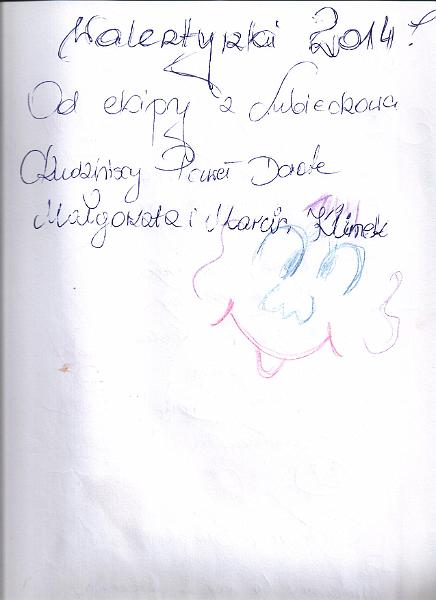 Walentynki 2014!
Od ekipy z Lubieckowa
Paweł Dorota
Małgorzata i Marcin Klimek